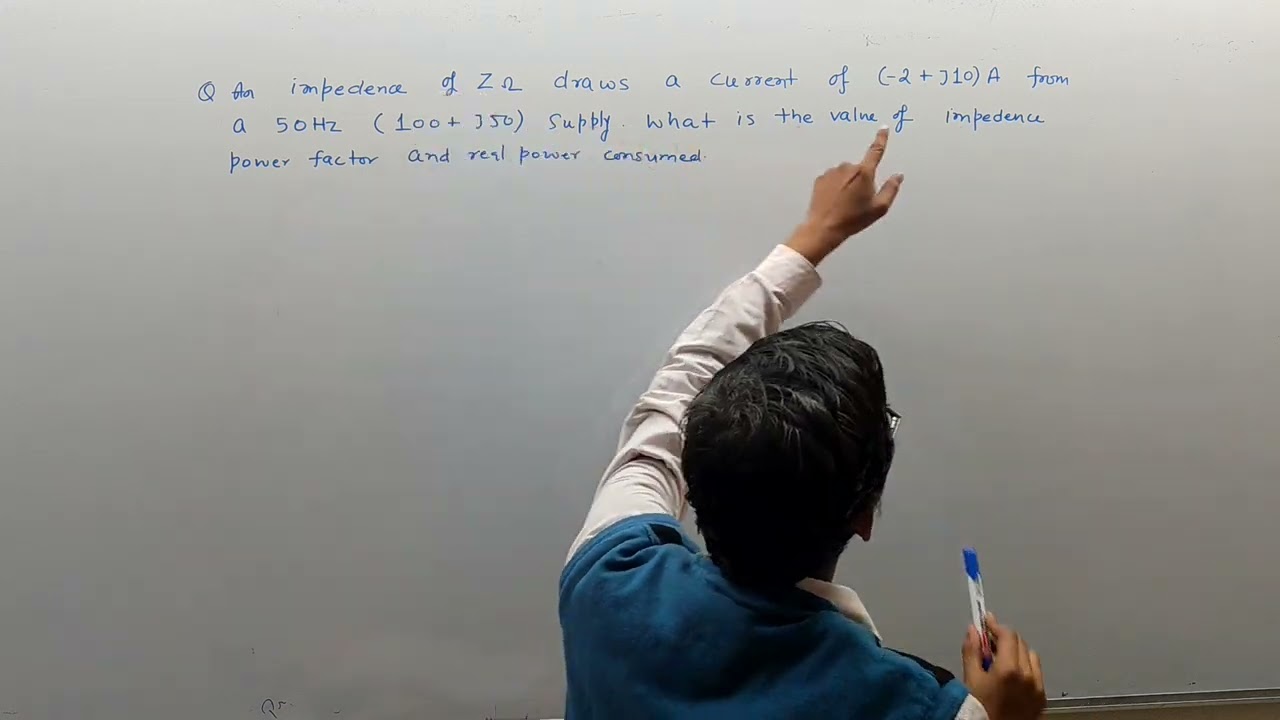 Q An impedence of Z Ω draws a current of (-2 + J10) A from
a 50Hz (100 + J50) supply. What is the value of impedence
power factor and real power consumed.